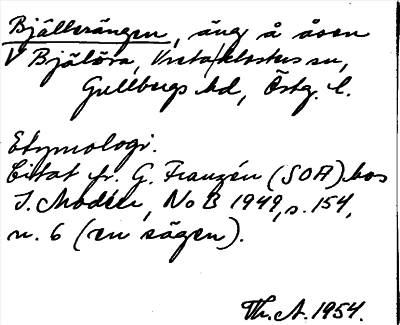 Bjällerängen, äng å åsen
V Bjälöra, Vreta klosters sn,
Gullbergs hd, Östg. l.
Etymologi.
Citat fr. G. Franzén (SOA) hos
I. Modéer, NoB 1949, s. 154,
n. 6 (en sägen).
Th. A. 1954.